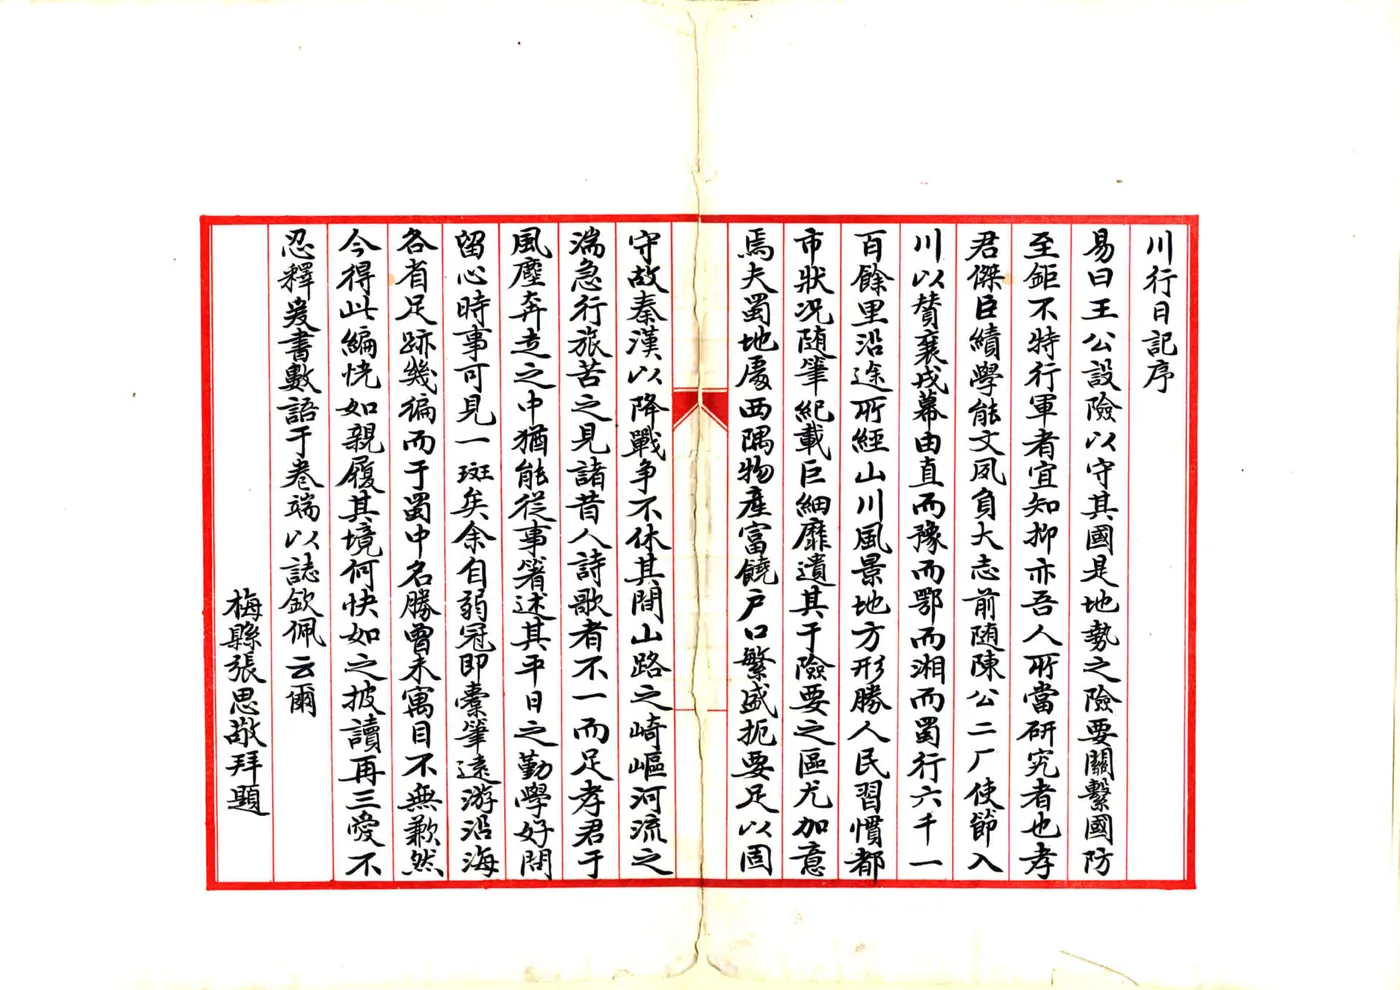 川行日記序
易曰王公設險以守其國是地勢之險要關繫國防
至鉅不特行軍者宜知抑亦吾人所當研究者也孝
君傑臣績學能文夙負大志前随陳公二厂使節入
川以贊襄戎幕由直而豫而鄂而湘而蜀行六千一
百餘里沿途所經山川風景地方形勝人民習慣都
市狀况随筆紀載巨細靡遺其于險要之區尤加意
焉夫蜀地處西隅物產富饒户口繁盛扼要足以固
守故秦漢以降戰争不休其間山路之崎嶇河流之
湍急行旅苦之見諸昔人詩歌者不一而足孝君于
風塵奔走之中猶能從事箸述其平日之勤學好問
留心時事可見一斑矣余自弱冠即橐筆遠游沿海
各省足跡幾徧而于蜀中名勝曾未寓目不無歉然
今得此編恍如親履其境何快如之披讀再三愛不
忍釋爰書數語于卷端以誌欽佩云爾
梅縣張思敬拜題